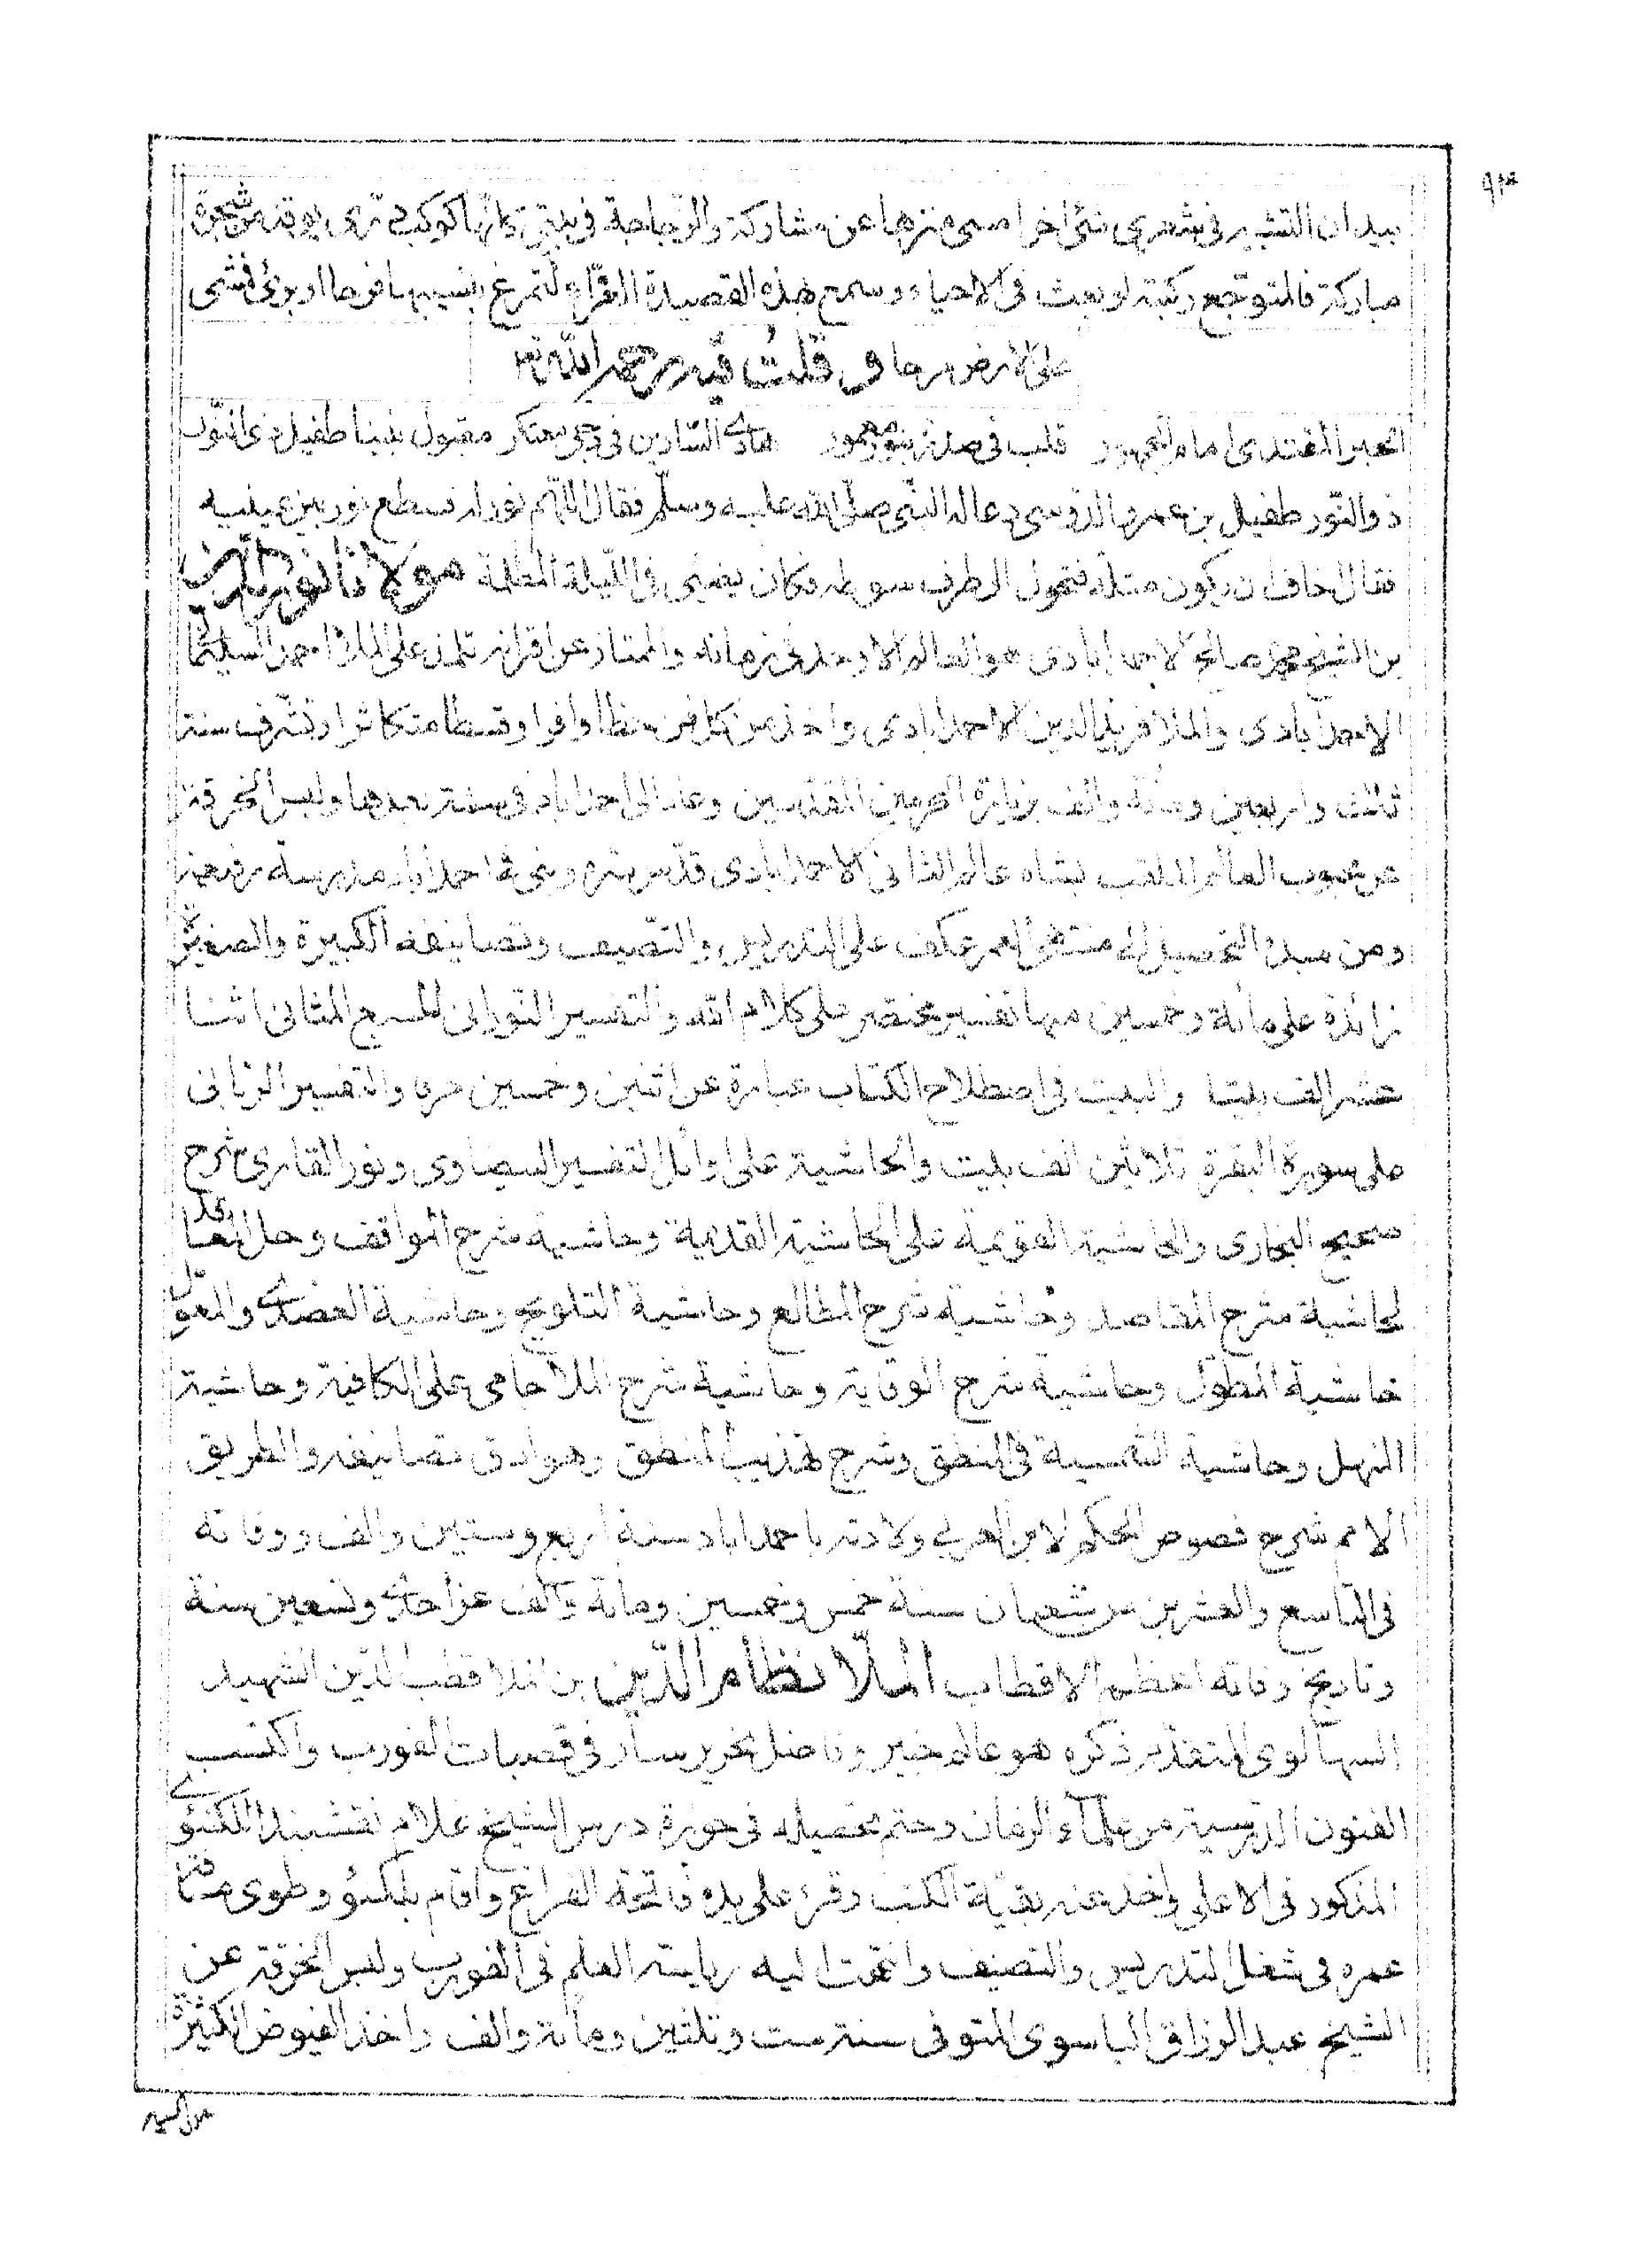 ٩٣
بيد ان التشبير في شعري شئ اخر اسمى منزها عن مشاركة والزجاجة في بيتي كانها كوكب دري يوقد من شجرة
مباركة فالمتوقع ركبة لو بعث في الاحياء وسمع هذه القصيدة الغراء لتمرغ بنسيبها فرحا او بوئى فشى
على الارض مرحا وقلت فيه رحمه الله تعالى
الحبر المقتدى امام الجمهور قلب في صدره بنور معمور هادى السارين في دجى معتكر مقبول نبينا طفيل ذى النور
ذو النور طفيل بن عمرو الدوسى دعا له النبى صلى الله عليه وسلم فقال اللهم نور له فسطع نور بين عينيه
فقال اخاف ان يكون مثلة فتحول الى طرف سوطه وكان يضئ في الليلة المظلمة مولانا نور الدين
بن الشيخ محمد صالح الاحمد ابادى هو العالم الاوحد في زمانه والممتاز عن اقرانه تلمذ على الملا احمد السليمانى
الاحمد آبادى والملا فريد الدين الاحمد ابادى واخذ من كل فن حظا وافرا وقسطا متكاثرا وتشرف سنة
ثلث واربعين ومائة والف بزيارة الحرمين المقدسين وعاد الى احمد اباد في سنة بعدها ولبس الخرقة
عن محبوب العالم الملقب بشاه عالم الثانى الاحمد ابادى قدس سره وبنى في احمد اباد مدرسة رفيعة
ومن مبدأ التحصيل الى منتهى العمر عكف على التدريس والتصنيف وتصانيفه الكبيرة والصغيرة
زائدة على مائة وخمسين منها تفسير مختصر على كلام الله والتفسير النورانى للسبع المثانى اثنا
عشر الف بيتا والبيت في اصطلاح الكتاب عبارة عن اثنين وخمسين حرفا والتفسير الربانى
على سورة البقرة ثلاثين الف بيت والحاشية على اوائل التفسير البيضاوى ونور القارى شرح
صحيح البخارى والحاشية القويمة على الحاشية القديمة وحاشية شرح المواقف وحل المعاقد
لحاشية شرح المقاصد وحاشية شرح المطالع وحاشية التلويح وحاشية العضدى والمعول
حاشية المطول وحاشية شرح الوقاية وحاشية شرح الملا جامى على الكافية وحاشية
المنهل وحاشية الشمسية في المنطق وشرح تهذيب المنطق وهو ادق تصانيفه والطريق
الامم شرح فصوص الحكم لابن العربى ولادته باحمد اباد سنة اربع وستين والف ووفاته
في التاسع والعشرين من شعبان سنة خمس وخمسين ومائة والف عن احدى وتسعين سنة
وتاريخ وفاته اعظم الاقطاب الملا نظام الدين بن الملا قطب الدين الشهيد
السهالوى المتقدم ذكره هو عالم خبير وفاضل نحرير سار في قصبات الفورب واكتسب
الفنون الدرسية من علماء الزمان وختم تحصيله في حوزة درس الشيخ غلام نقشبند اللكنوى
المذكور في الاعلى واخذ عنه بقية الكتب وقرء على يده فاتحة الفراغ واقام بلكنؤ وطوى مدة
عمره في شغل التدريس والتصنيف وانتهت اليه رياسة العلم في الفورب ولبس الخرقة عن
الشيخ عبد الرزاق الباسوى المتوفى سنة ست وثلثين ومائة والف واخذ الفيوض الكثيرة